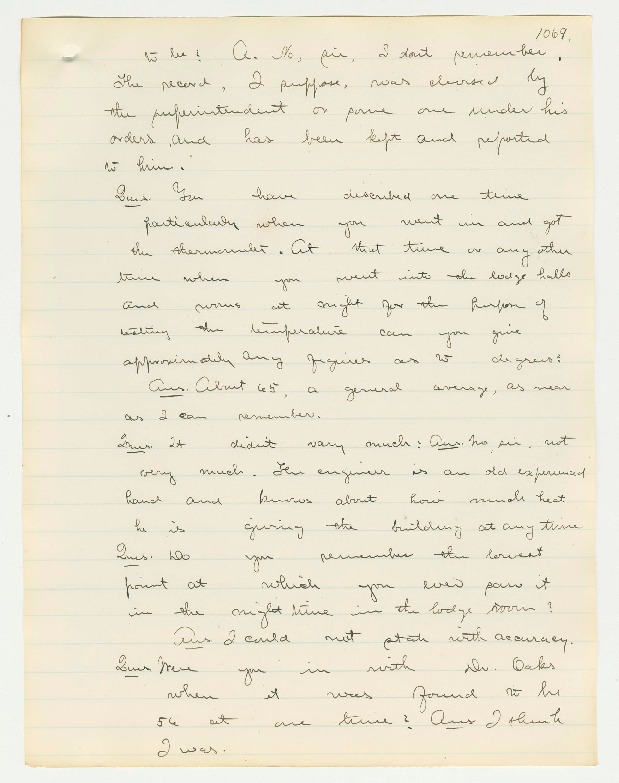 1069.
to be? A. No, sir, I don't remember.
The record, I suppose, was devised by
the superintendent or some one under his
orders, and has been kept and reported
to him.
Ques. You have described one time
particularly when you went in and got
the thermometer. At that time or any other
time when you went into the lodge halls
and rooms at night for the purpose of
testing the temperature can you give
approximately any figures as to degrees?
Ans. About 65, a general average, as near
as I can remember.
Ques. It didn't vary much? Ans. No, sir, not
very much. The engineer is an old experienced
hand and knows about how much heat
he is giving the building at any time
Ques. Do you remember the lowest
point at which you ever saw it
in the night time in the lodge room?
Ans I could not state with accuracy.
Ques Were you in with Dr. Oaks
when it was found to be
56 at one time? Ans I think
I was.